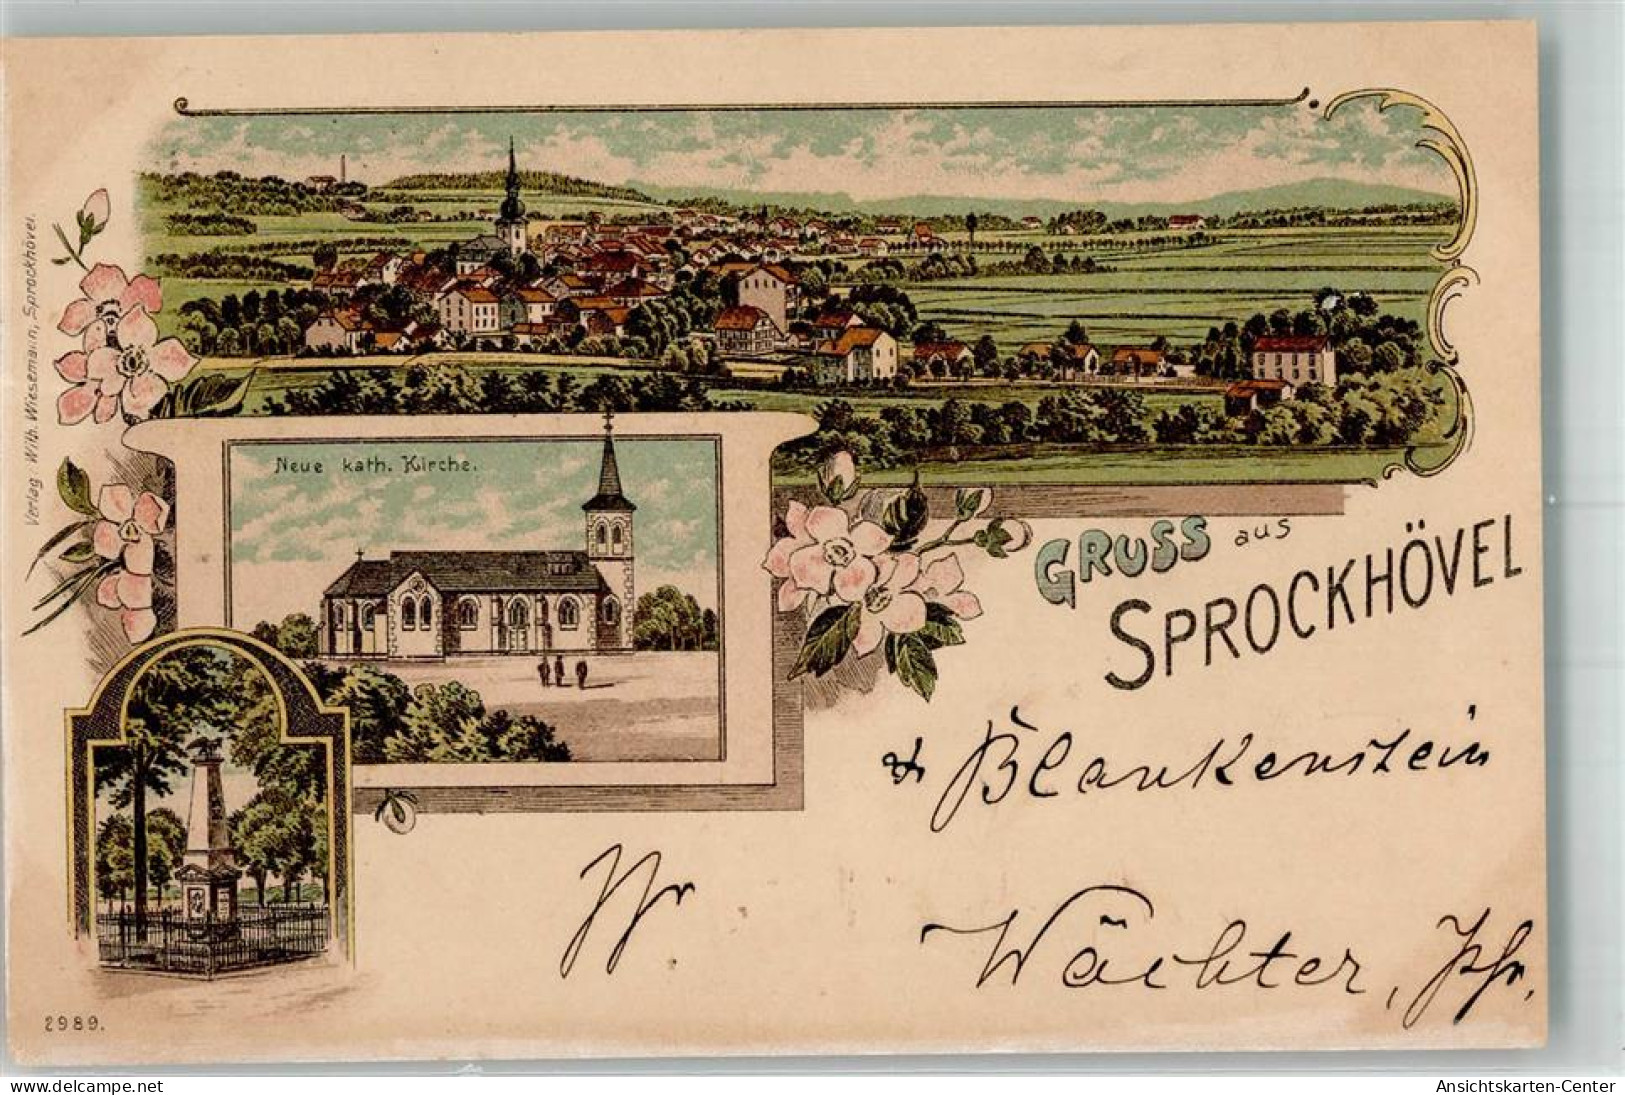 Verlag Wilh. Wiesemann, Sprockhövel.
Neue kath. Kirche.
GRUSS aus
SPROCKHÖVEL
& Blankenstein
Wächter, Pfr.
2989.
www.delcampe.net
Ansichtskarten-Center